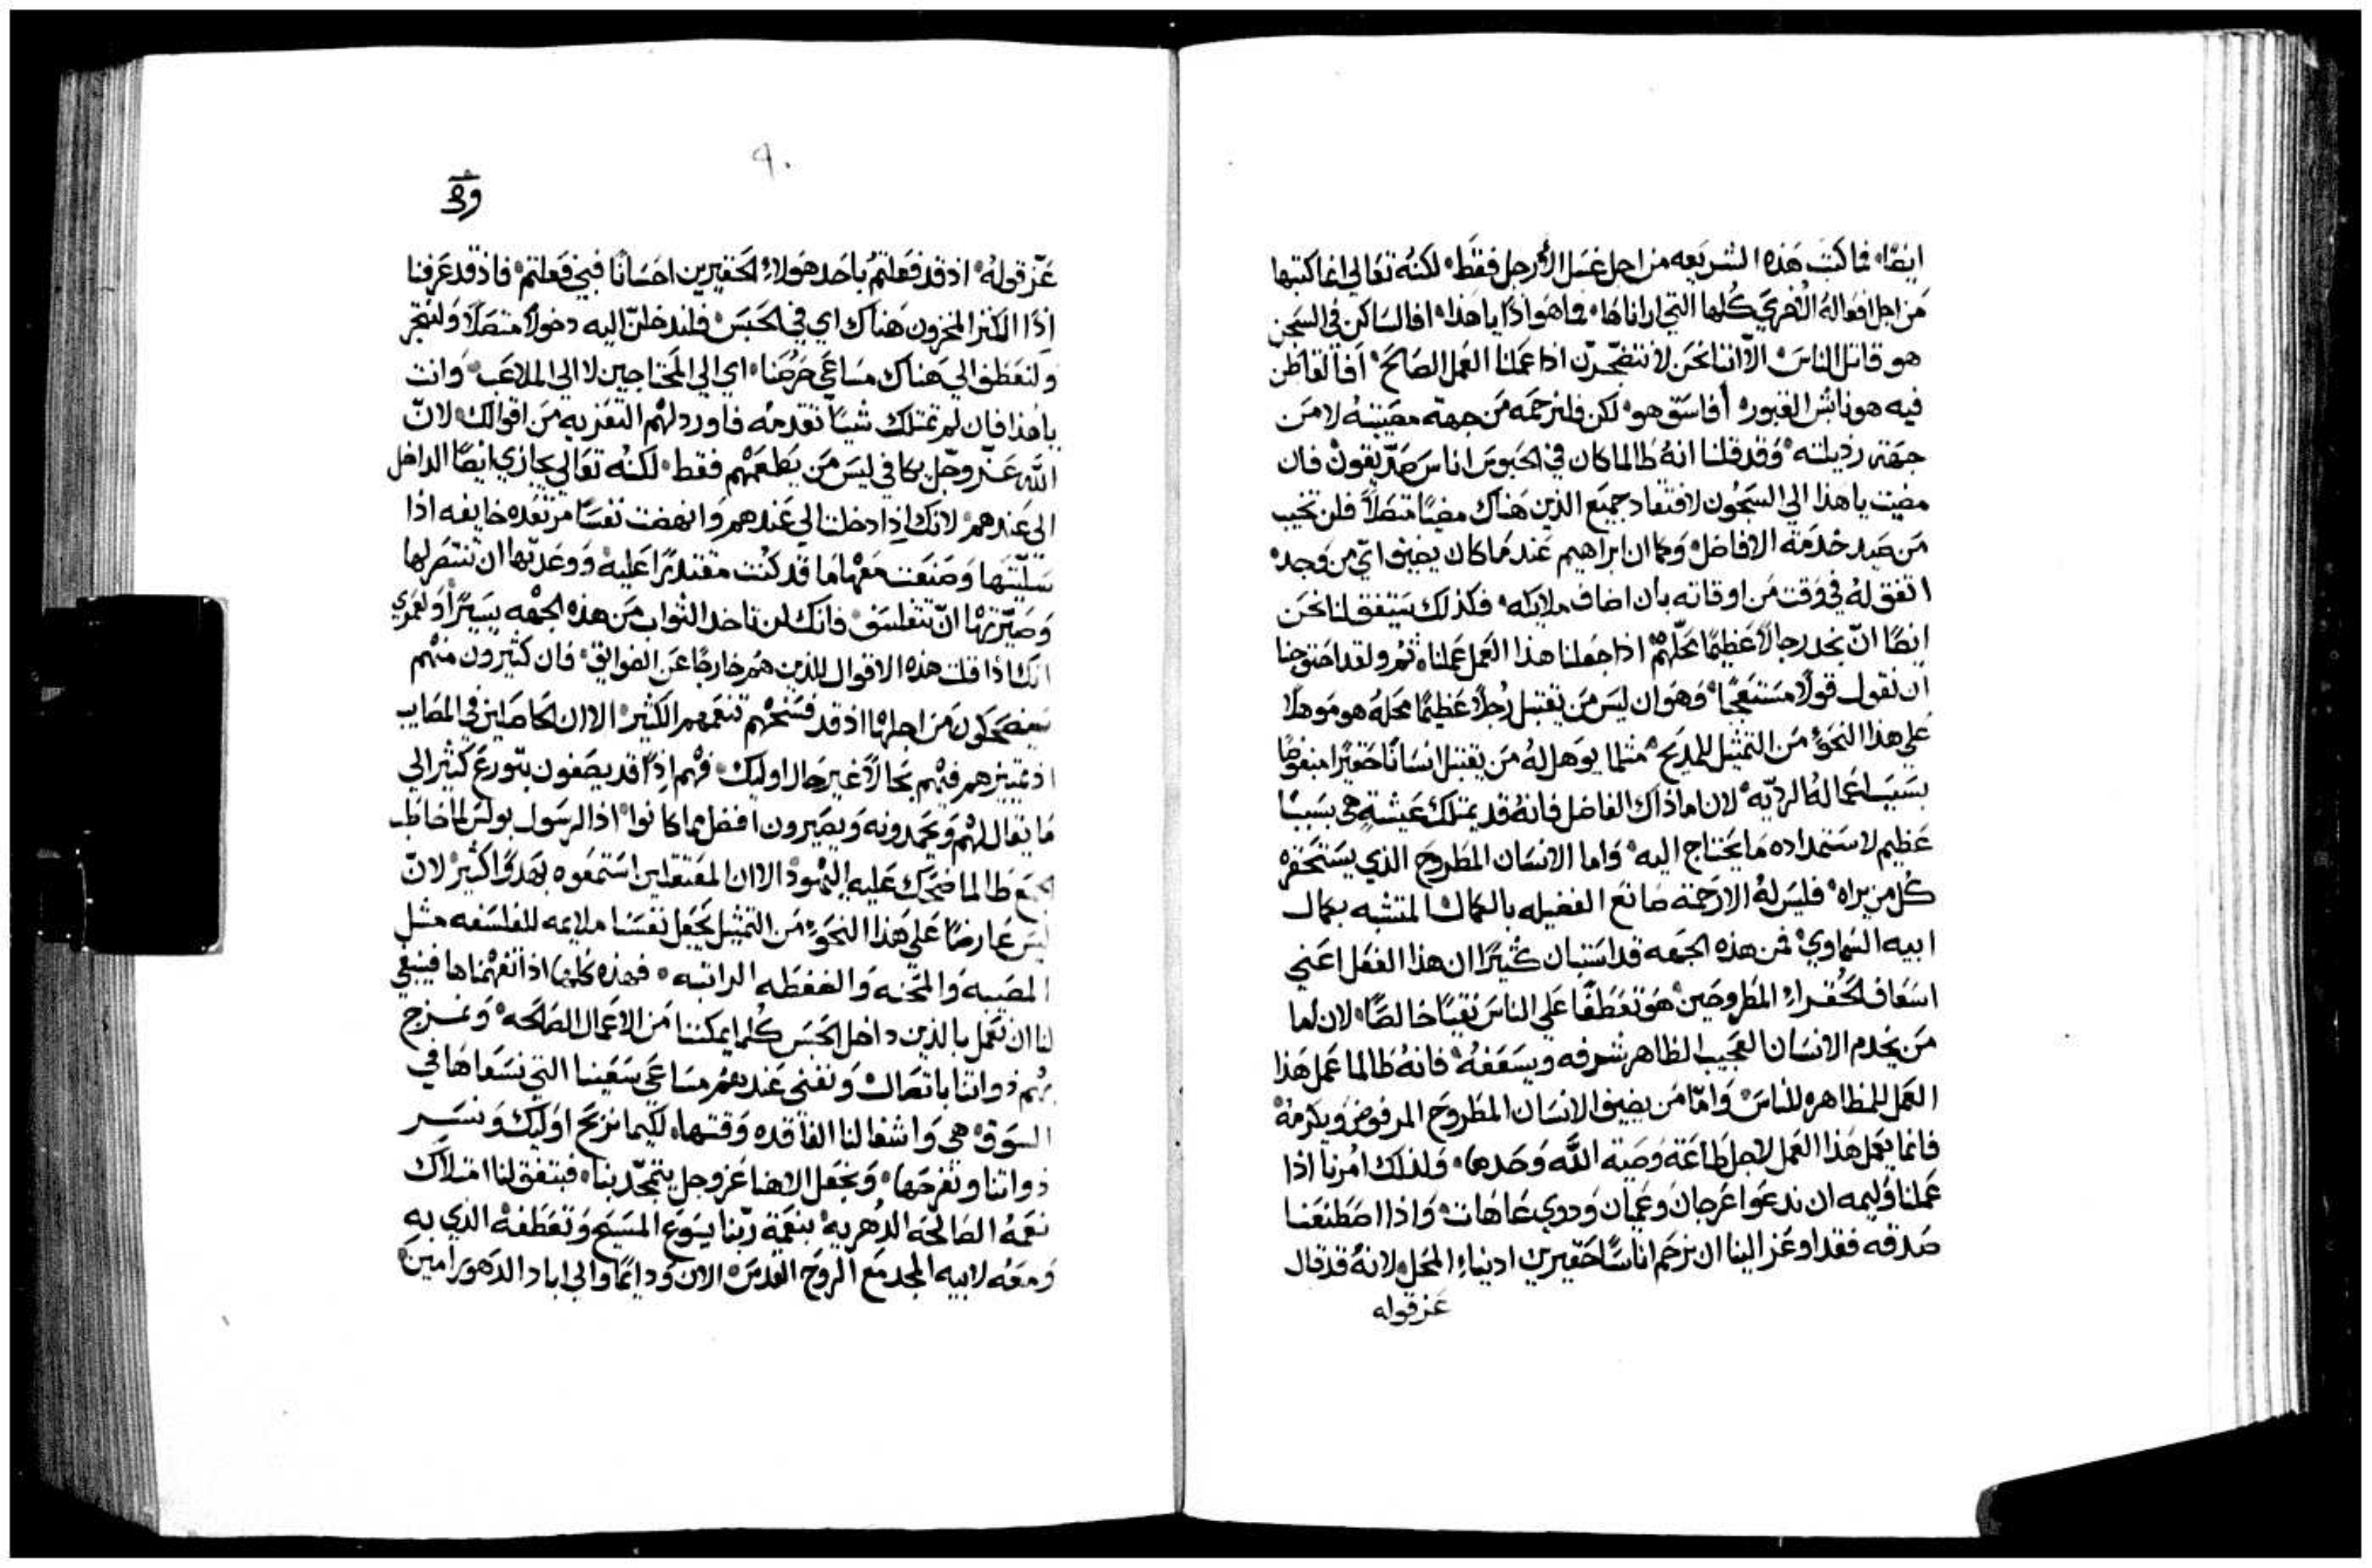 ايضًا، فما كتبَ هذه الشريعه من اجل غسل الأرجل فقط، لكنه تعالي انما كتبها
من اجل افعاله الأخري كلها التي ارانا ها، فما هو اذًا يا هذا، افالساكن في السجن
هو قاتل الناس الّا اننا نحن لا نتضجّرن اذا عملنا العمل الصالح، افالقاطن
فيه هو نابش القبور، أفاسق هو، لكن فلنرحمه من جهة مصيبته لا من
جهة رذيلته، وقد قلنا انه طالما كان في الحبوس اناس صدّيقون فان
مضيت يا هذا الي السجون لافتقاد جميع الذين هناك مضيًا متصلًا فلن تخيب
من صيد خدمة الافاضل، وكما ان ابراهيم عند ما كان يضيف ايّ من وجده
اتفق له في وقت من اوقاته بان اضاف ملايكه، فكذلك سيتفق لنا نحن
ايضًا انّ نجد رجالًا عظيمًا محلّهم اذا جعلنا هذا العمل عملنا، ثم ولقد احتوجنا
ان نقول قولًا مستعجبًا، وهو ان ليس من يقتبل رجلًا عظيمًا محله هو موهلًا
علي هذا النحو من التمثيل للمديح، مثلما يوهل له من يقتبل انسانًا حقيرًا مبغوضًا
بسبب اعماله الرديّه، لان اما ذاك الفاضل فانه قد يمتلك عيشةٍ هي بسببًا
عظيم لاستمداده ما يحتاج اليه، واما الانسان المطروح الذي يستحقره
كل من يراه، فليس له الا رحمة صانع الفضيله بالكمال المتشبه بكمال
ابيه السماوي، فمن هذه الجهه قد استبان كثيرًا ان هذا الفعل اعني
اسعاف الحقراء المطروحين، هو تعطفًا علي الناس نقيًا خالصًا، لان اما
من يخدم الانسان العجيب الظاهر شرفه ويسعفه، فانه طالما عمل هذا
العمل للمظاهره للناس، وامّا من يضيف الانسان المطروح المرفوض ويكرمه
فانما يعمل هذا العمل لاجل طاعة وصية اللّه وحدها، ولذلك امرنا اذا
عملنا وليمه ان ندعوا عرجان وعميان وذوي عاهات، واذا اصطنعنا
صدقه فقد اوعز الينا ان نرحم اناسًا حقيرين ادنياء المحل، لانه قد قال
عز قوله
٩٠
عزّ قوله، اذ قد فعلتم باحد هولاء الحقيرين احسانًا فبي فعلتم، فاذ قد عرفنا
اذًا الكنز المخزون هناك اي في الحبس، فلندخلنّ اليه دخولًا متصلًا ولنتجر
ولنعطف الي هناك مساعي حرصنا، اي الي المحتاجين لا الي الملاعب، وانت
يا هذا فان لم تمتلك شيئًا تقدمه فاورد لهم التعزيه من اقوالك، لانّ
اللّه عزّ وجلّ يكافي ليس من يطعمهم فقط، لكنه تعالي يجازي ايضًا الداخل
الي عندهم، لانك اذا دخلت الي عندهم وانهضت نفسًا مرتعده خايفه اذا
سلّيتها وصنعت معها ما قد كنت مقتدرًا عليه، ووعدتها ان تنتصر لها
وصيّرتها انّ تتفلسف، فانك لن تاخذ الثواب من هذه الجهه يسيرًا، ولعمري
انك اذا قلت هذه الاقوال للذين هم خارجًا عن الضوايق، فان كثيرون منهم
سيضحكون من اجلها اذ قد فسخهم تنعمهم الكثير، الا ان الحاصلين في المصايب
اذ تمييزهم فيهم بحالًا غير حال اوليك، فهم اذًا قد يصغون بتورع كثير الي
ما يقال لهم ويحمدونه ويصيرون افضل مما كانوا، اذ الرسول بولس لما خاطب
الجمع طالما ضحك عليه اليهود، الا ان المعتقلين استمعوه بهدوًا كثير، لانّ
ليس عارضًا علي هذا النحو من التمثيل يجعل نفسنا ملايمه للفلسفه مثل
المصيبه والمحنه والضغطه الراتبه، فهذه كلها اذا تفهمناها فينبغي
لنا ان نعمل بالذين داخل الحبس كلما يمكننا من الاعمال الصالحه، ونمزج
بهم ذواتنا باتصال ونفني عندهم مساعي سعينا التي نسعاها في
السوق هي واشغالنا الفاقده وقتها، لكيما نربح اوليك ونسر
ذواتنا ونفرحها، ونجعل الاهنا عز وجل يتمجّد بنا، فيتفق لنا امتلاك
نعمه الصالحه الدهريه، بنعمة ربّنا يسوع المسيح وتعطفه الذي به
ومعه لابيه المجد مع الروح القدس، الان ودايمًا والي اباد الدهور امين،